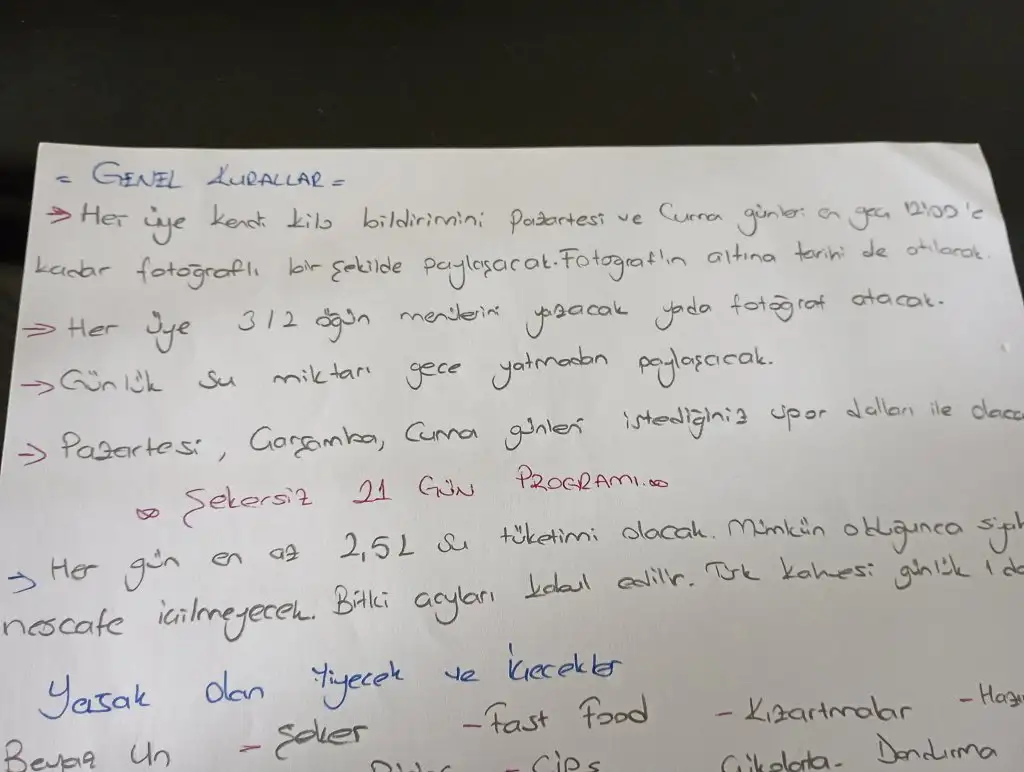 = GENEL KURALLAR =
→ Her üye kendi kilo bildirimini Pazartesi ve Cuma günleri en geç 12:00'e
kadar fotoğraflı bir şekilde paylaşacak. Fotoğraf'ın altına tarihi de atılarak.
→ Her üye 3/2 öğün menülerini yazacak yada fotoğraf atacak.
→ Günlük su miktarı gece yatmadan paylaşıcak.
→ Pazartesi, Çarşamba, Cuma günleri istediğiniz spor dalları ile
∞ Şekersiz 21 GÜN PROGRAMI ∞
→ Her gün en az 2,5 L su tüketimi olacak. Mümkün oldığunca
nescafe içilmeyecek. Bitki açyları kabul edilir. Türk kahvesi günlük 1
Yasak olan Yiyecek ve İçecekler
Beyaz Un - Şeker - Fast Food - Kızartmalar -
- Cips Çikolata - Dondurma